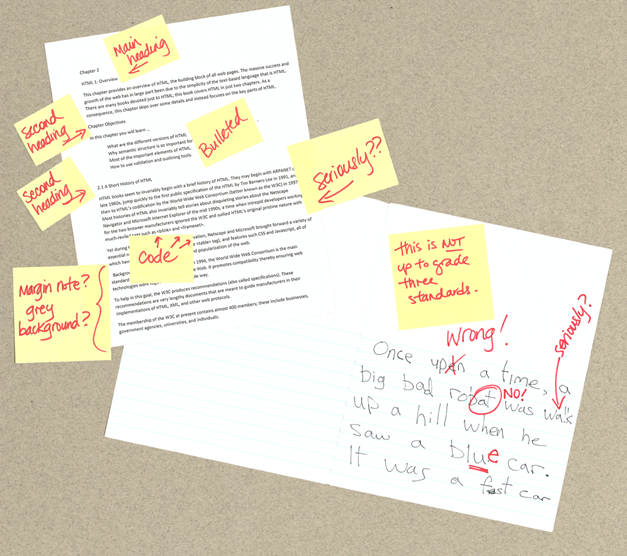 Main
heading
Chapter 2
HTML 1: Overview
This chapter provides an overview of HTML, the building block of all web pages. The massive success and
growth of the web has in large part been due to the simplicity of the text-based language that is HTML.
There are many books devoted just to HTML; this book covers HTML in just two chapters. As a
consequence, this chapter skips over some details and instead focuses on the key parts of HTML.
second
heading
Chapter Objectives
In this chapter you will learn...
What are the different versions of HTML
Why semantic structure is so important for
Most of the important elements of HTML,
How to use validation and outlining tools.
Bulleted
second
heading
2.1 A Short History of HTML
HTML books seem to invariably begin with a brief history of HTML. They may begin with ARPANET
late 1960s, jump quickly to the first public specification of the HTML by Tim Berners-Lee in 1991, an
then to HTML's codification by the World Wide Web Consortium (better known as the W3C) in 1997
Most histories of HTML also invariably tell stories about the Netscape
Navigator and Microsoft Internet Explorer of the mid 1990s, a time when intrepid developers working
for the two browser manufacturers ignored the W3C and
such as <blink> and <famesets>.
seriously??
Code
Yet during
ation, Netscape and Microsoft brought forward a variety of
essential
<table> tag), and features such CSS and JavaScript, all of
which have
popularization of the web.
Margin note?
grey
background?
Background
1994, the World Wide Web Consortium is the main
standards
Web. It promotes compatibility thereby ensuring web
technologies work
way.
To help in this goal, the W3C produces recommendations (also called specifications). These
recommendations are very lengthy documents that are meant to guide manufacturers in their
implementations of HTML, XML, and other web protocols.
The membership of the W3C at present contains almost 400 members; these include businesses,
government agencies, universities, and individuals.
this is NOT
up to grade
three
standards.
Wrong!
seriously?
Once upon a time, a
NO!
big bad robat was walk
up a hill when he
saw a blue car.
It was a fast car